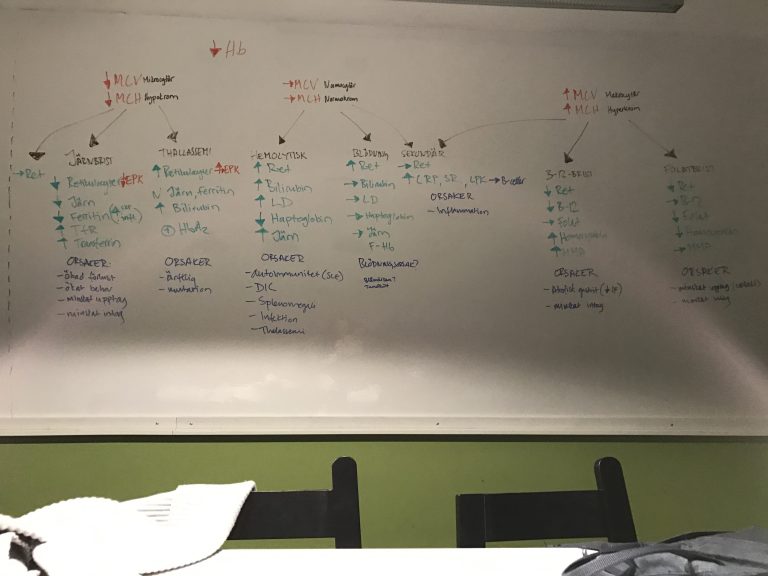 ↓ Hb
↓ MCV Mikrocytär
↓ MCH Hypokrom
→ MCV Normocytär
→ MCH Normokrom
↑ MCV Makrocytär
↑ MCH Hyperkrom
→ Ret
JÄRNBRIST
Retikulocyter ↓EPK
↓ Järn
↓ Ferritin (↑
↑ TfR
↑ Transferrin
ORSAKER
- ökad förlust
- ökat behov
- minskat upptag
- minskat intag
THALLASSEMI
↑ Retikulocyter ↑EPK
N Järn, ferritin
↑ Bilirubin
HbA2
ORSAKER
- ärftlig
- mutation
HEMOLYTISK
↑ Ret
↑ Bilirubin
↑ LD
↓ Haptoglobin
↑ Järn
ORSAKER
- autoimmunitet (SLE)
- DIC
- Splenomegali
- Infektion
- Thalassemi
BLÖDNING
↑ Ret
→ Bilirubin
→ LD
→ Haptoglobin
→ Järn
F-Hb
SEKUNDÄR
→ Ret
↑ CRP, SR, LPK → B-celler
ORSAKER
- Inflammation
B-12-BRIST
↓ Ret
↓ B-12
→ Folat
↑ Homocystein
↑ MMA
ORSAKER
- Atrofisk gastrit (↓IF)
- minskat intag
FOLATBRIST
↓ Ret
→ B-12
↓ Folat
Homocystein
→ MMA
ORSAKER
- minskat upptag
- minskat intag